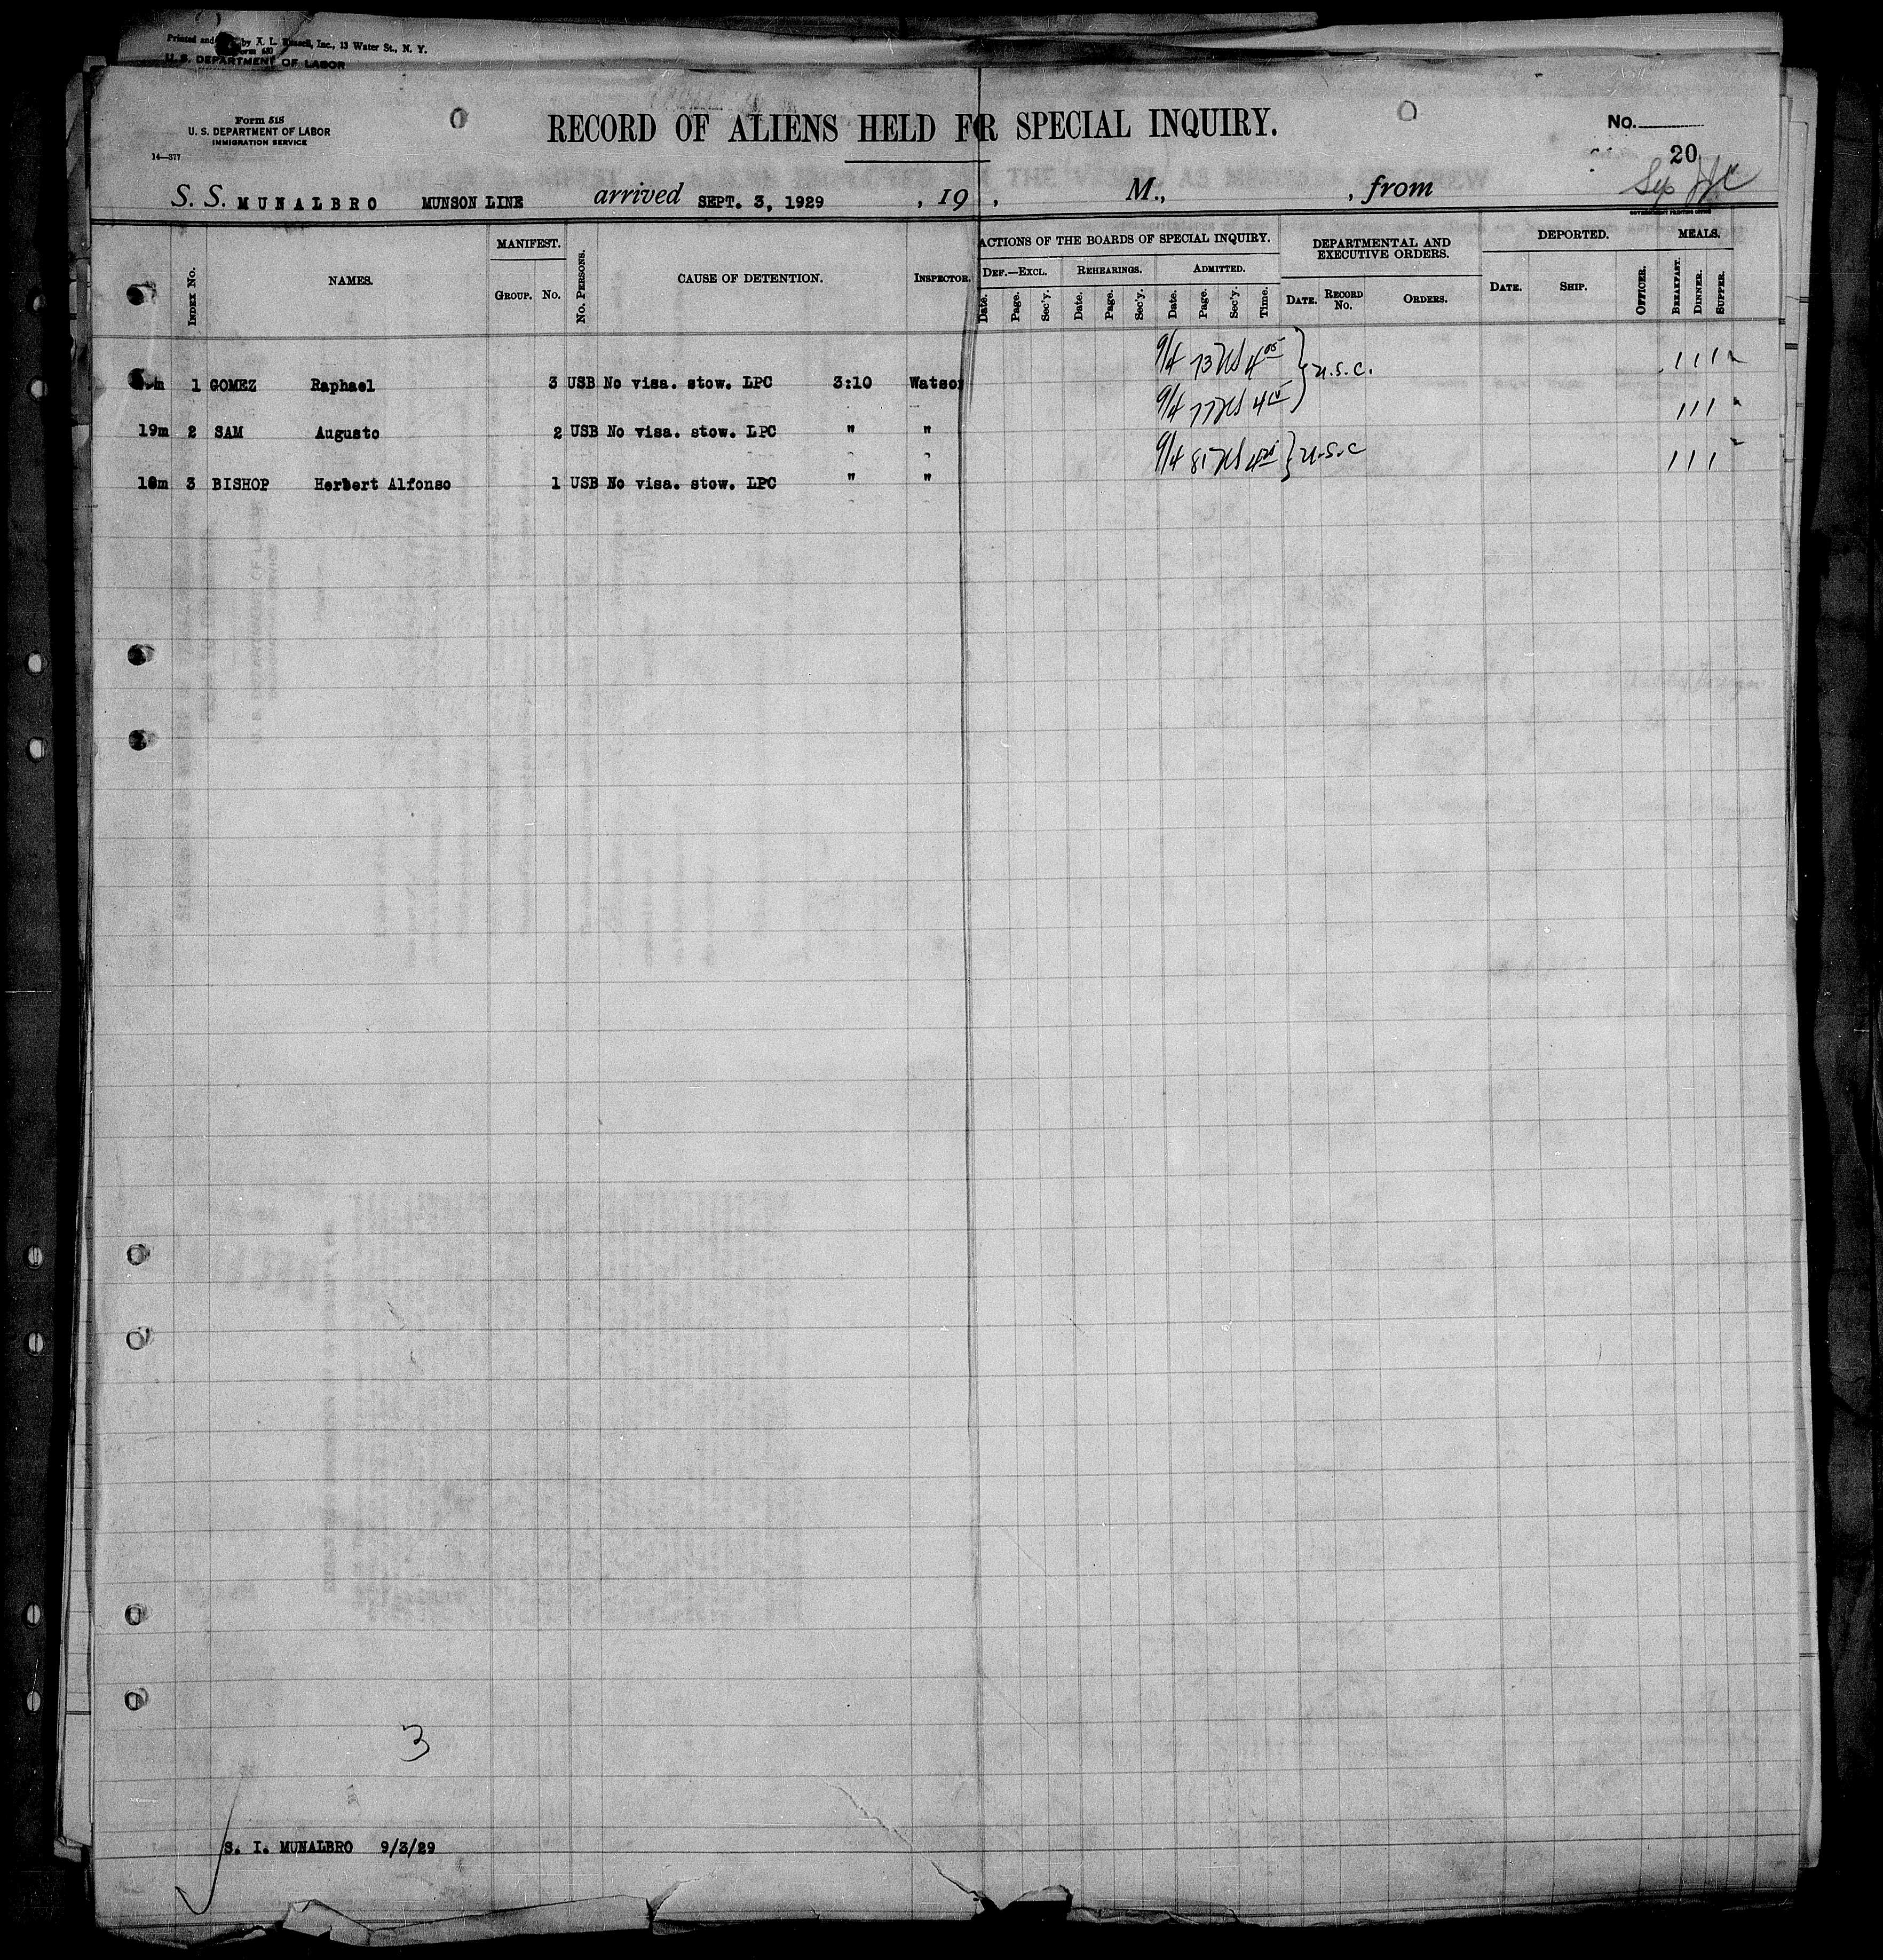 Printed and by X. L. Inc., 13 Water St., N. Y.
U. S. DEPARTMENT OF LABOR
Form 515
U. S. DEPARTMENT OF LABOR
IMMIGRATION SERVICE
14—377
RECORD OF ALIENS HELD FR SPECIAL INQUIRY.
No.
20
S. S. MUNALBRO MUNSON LINE arrived SEPT. 3, 1929 , 19 , M., , from
GOVERNMENT PRINTING OFFICE
INDEX No. NAMES. MANIFEST. GROUP. No. No. PERSONS. CAUSE OF DETENTION. INSPECTOR. ACTIONS OF THE BOARDS OF SPECIAL INQUIRY. DEPARTMENTAL AND EXECUTIVE ORDERS. DEPORTED. MEALS.
DEF.—EXCL. REHEARINGS. ADMITTED.
Date. Page. Sec'y. Date. Page. Sec'y. Date. Page. Sec'y. Time. DATE. RECORD No. ORDERS. DATE. SHIP. OFFICER. BREAKFAST. DINNER. SUPPER.
m 1 GOMEZ Raphael 3 USB No visa. stow. LPC 3:10 Watson 9/4 73 4 05 } U.S.C. 1 1 1
19m 2 SAM Augusto 2 USB No visa. stow. LPC " " 9/4 77 1 1 1
18m 3 BISHOP Herbert Alfonso 1 USB No visa. stow. LPC " " 9/4 81 } U.S.C 1 1 1
3
S. I. MUNALBRO 9/3/29